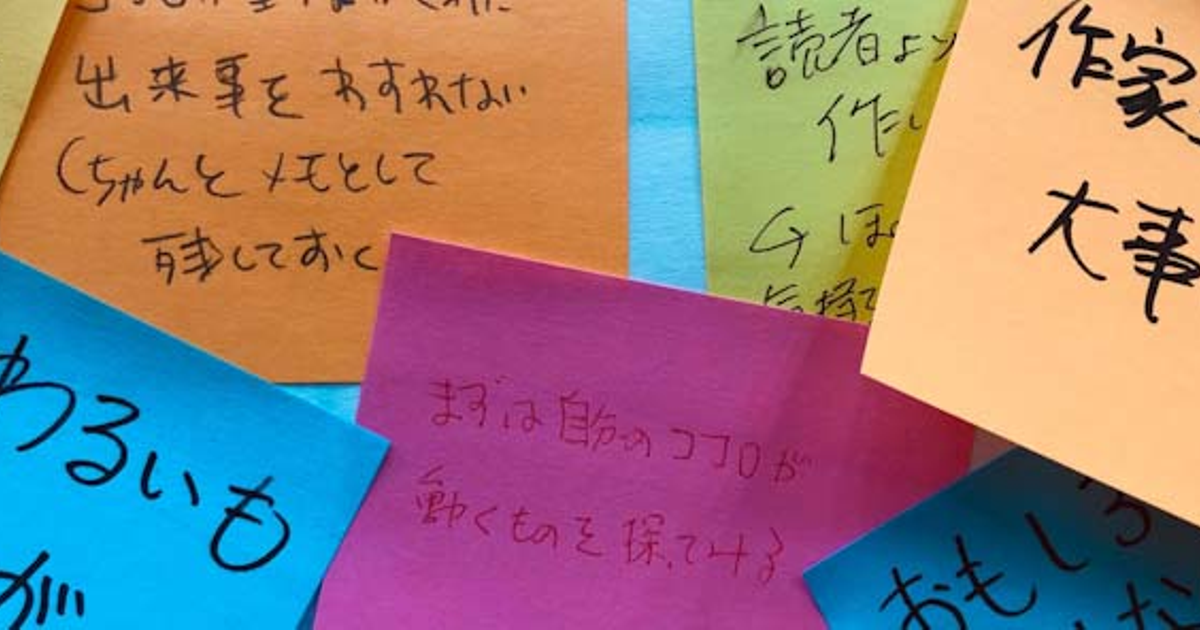 出来事をわすれない
(ちゃんとメモとして
残しておく
読者より
作
↳ ほ
気持
作家
大事
まずは自分のココロが
動くものを探してみる
わるいも
が
おもしろ